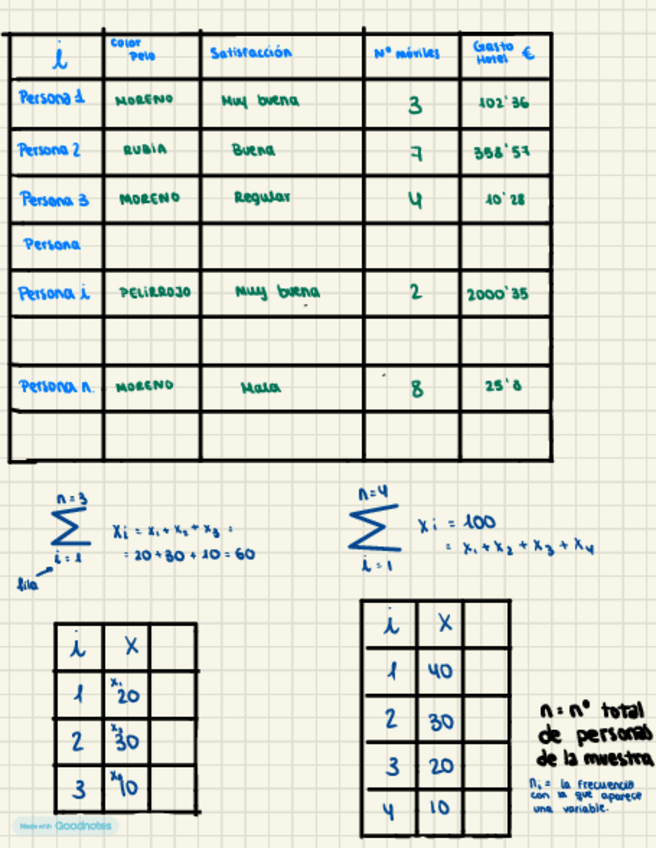 i Color Pelo Satisfacción Nº móviles Gasto Hotel €
Persona 1 MORENO Muy buena 3 102'36
Persona 2 RUBIA Buena 7 358'57
Persona 3 MORENO Regular 4 10'28
Persona
Persona i PELIRROJO Muy buena 2 2000'35
Persona n. MORENO Mala 8 25'8
n=3
∑ xi = x₁ + x₂ + x₃ =
i=1 = 20+30+10=60
fila
n=4
∑ xi = 100
i=1 = x₁ + x₂ + x₃ + x₄
i X
1 x₁ 20
2 x₂ 30
3 10
i X
1 40
2 30
3 20
4 10
n = nº total
de personas
de la muestra
nᵢ = la frecuencia
con la que aparece
una variable.
Made with Goodnotes